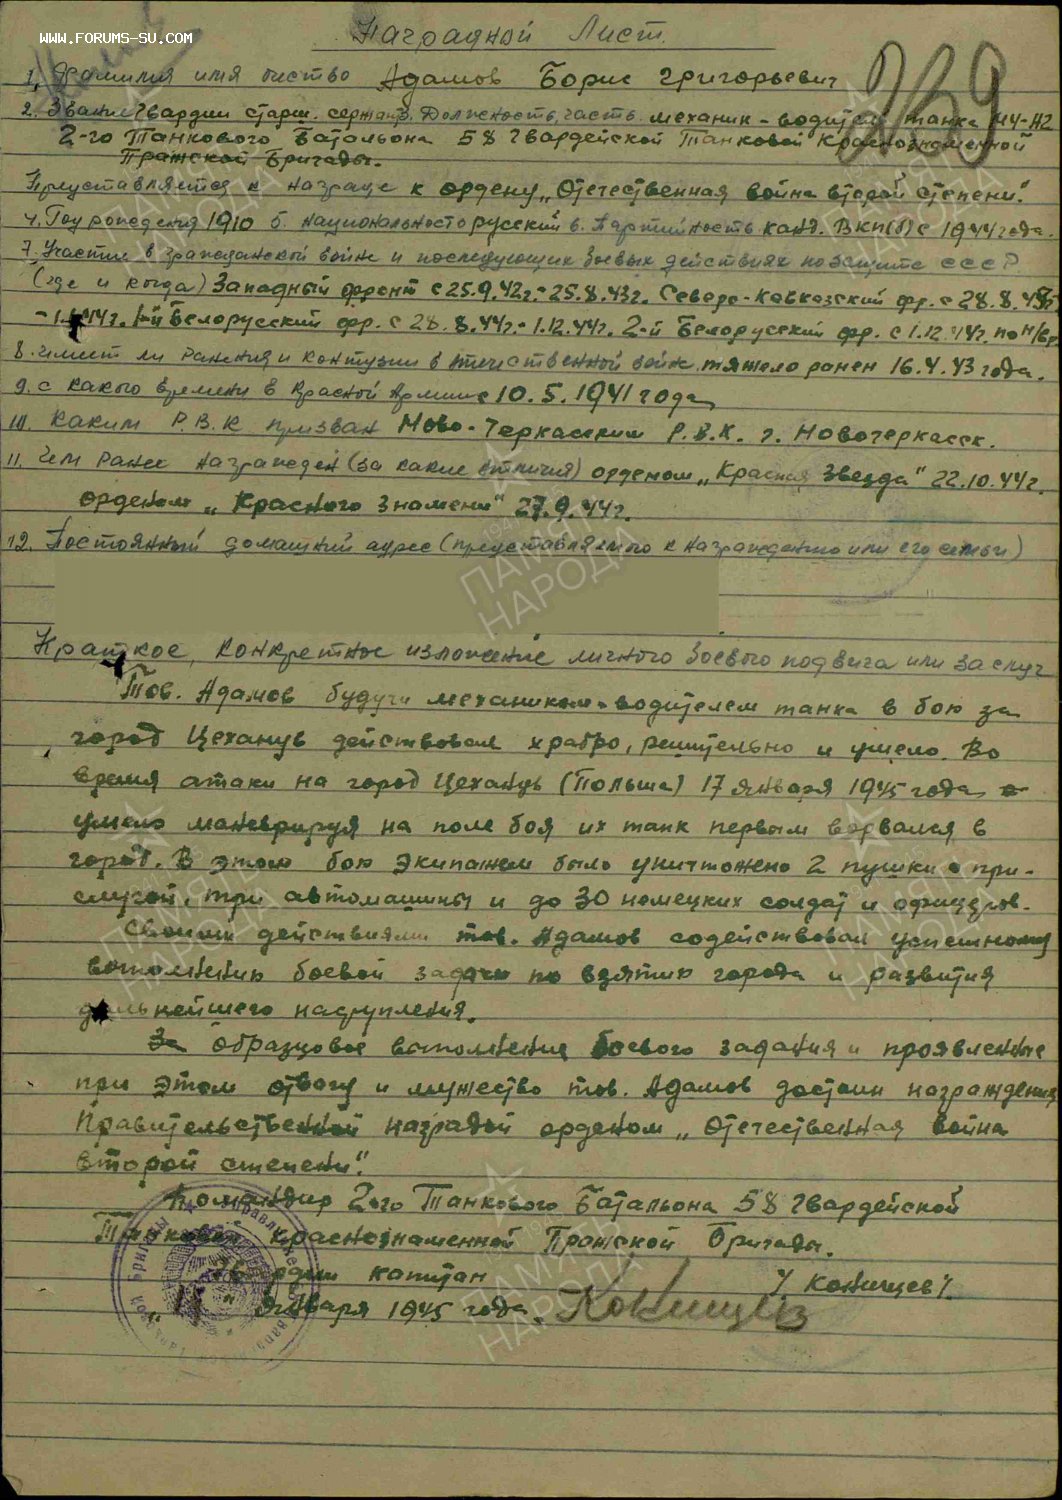 WWW.FORUMS-SU.COM
Наградной Лист.
239
1. Фамилия имя отество Адамов Борис Григорьевич
2. Звание Гвардии старш. сержант 3. Должность, часть. механик-водитель танка М4-А2
2-го Танкового Батальона 58 Гвардейской Танковой Краснознаменной
Пражской Бригады.
Представляется к награде к ордену „Отечественная война второй степени".
4. Год рождения 1910 5. национальность русский 6. Партийность канд. ВКП(б) с 1944 года.
7. Участие в гражданской войне и последующих боевых действиях по защите СССР
(где и когда) Западный фронт с 25.9.42г.-25.8.43г. Северо-Кавказский фр. с 28.8.43г.
-1.1.44г. 1-й Белорусский фр. с 28.8.44г.-1.12.44г. 2-й Белорусский фр. с 1.12.44г. по н/вр.
8. имеет ли ранения и контузии в отечественной войне. тяжело ранен 16.4.43 года.
9. с какого времени в Красной Армии с 10.5.1941 года
10. каким Р.В.К призван Ново-Черкасским Р.В.К. г. Новочеркасск.
11. Чем ранее награжден (за какие отличия) орденом „Красная Звезда" 22.10.44г.
орденом „Красного Знамени" 27.9.44г.
12. Постоянный домашний адрес (представляемого к награждению или его семьи)
Краткое, конкретное изложение личного боевого подвига или заслуг
Тов. Адамов будучи механиком-водителем танка в бою за
город Цеханув действовал храбро, решительно и умело. Во
время атаки на город Цеханув (Польша) 17 января 1945 года
умело маневрируя на поле боя их танк первым ворвался в
город. В этом бою экипажем было уничтожено 2 пушки с при-
слугой, три автомашины и до 30 немецких солдат и офицеров.
Своими действиями тов. Адамов содействовал успешному
выполнению боевой задачи по взятию города и развития
дальнейшего наступления.
За образцовое выполнение боевого задания и проявленные
при этом отвагу и мужество тов. Адамов достоин награждения
Правительственной наградой орденом „Отечественная война
второй степени".
Командир 2-го Танкового Батальона 58 Гвардейской
Танковой краснознаменной Пражской Бригады.
Гвардии капитан
/Конищев/.
января 1945 года. Конищев
ПАМЯТЬ НАРОДА